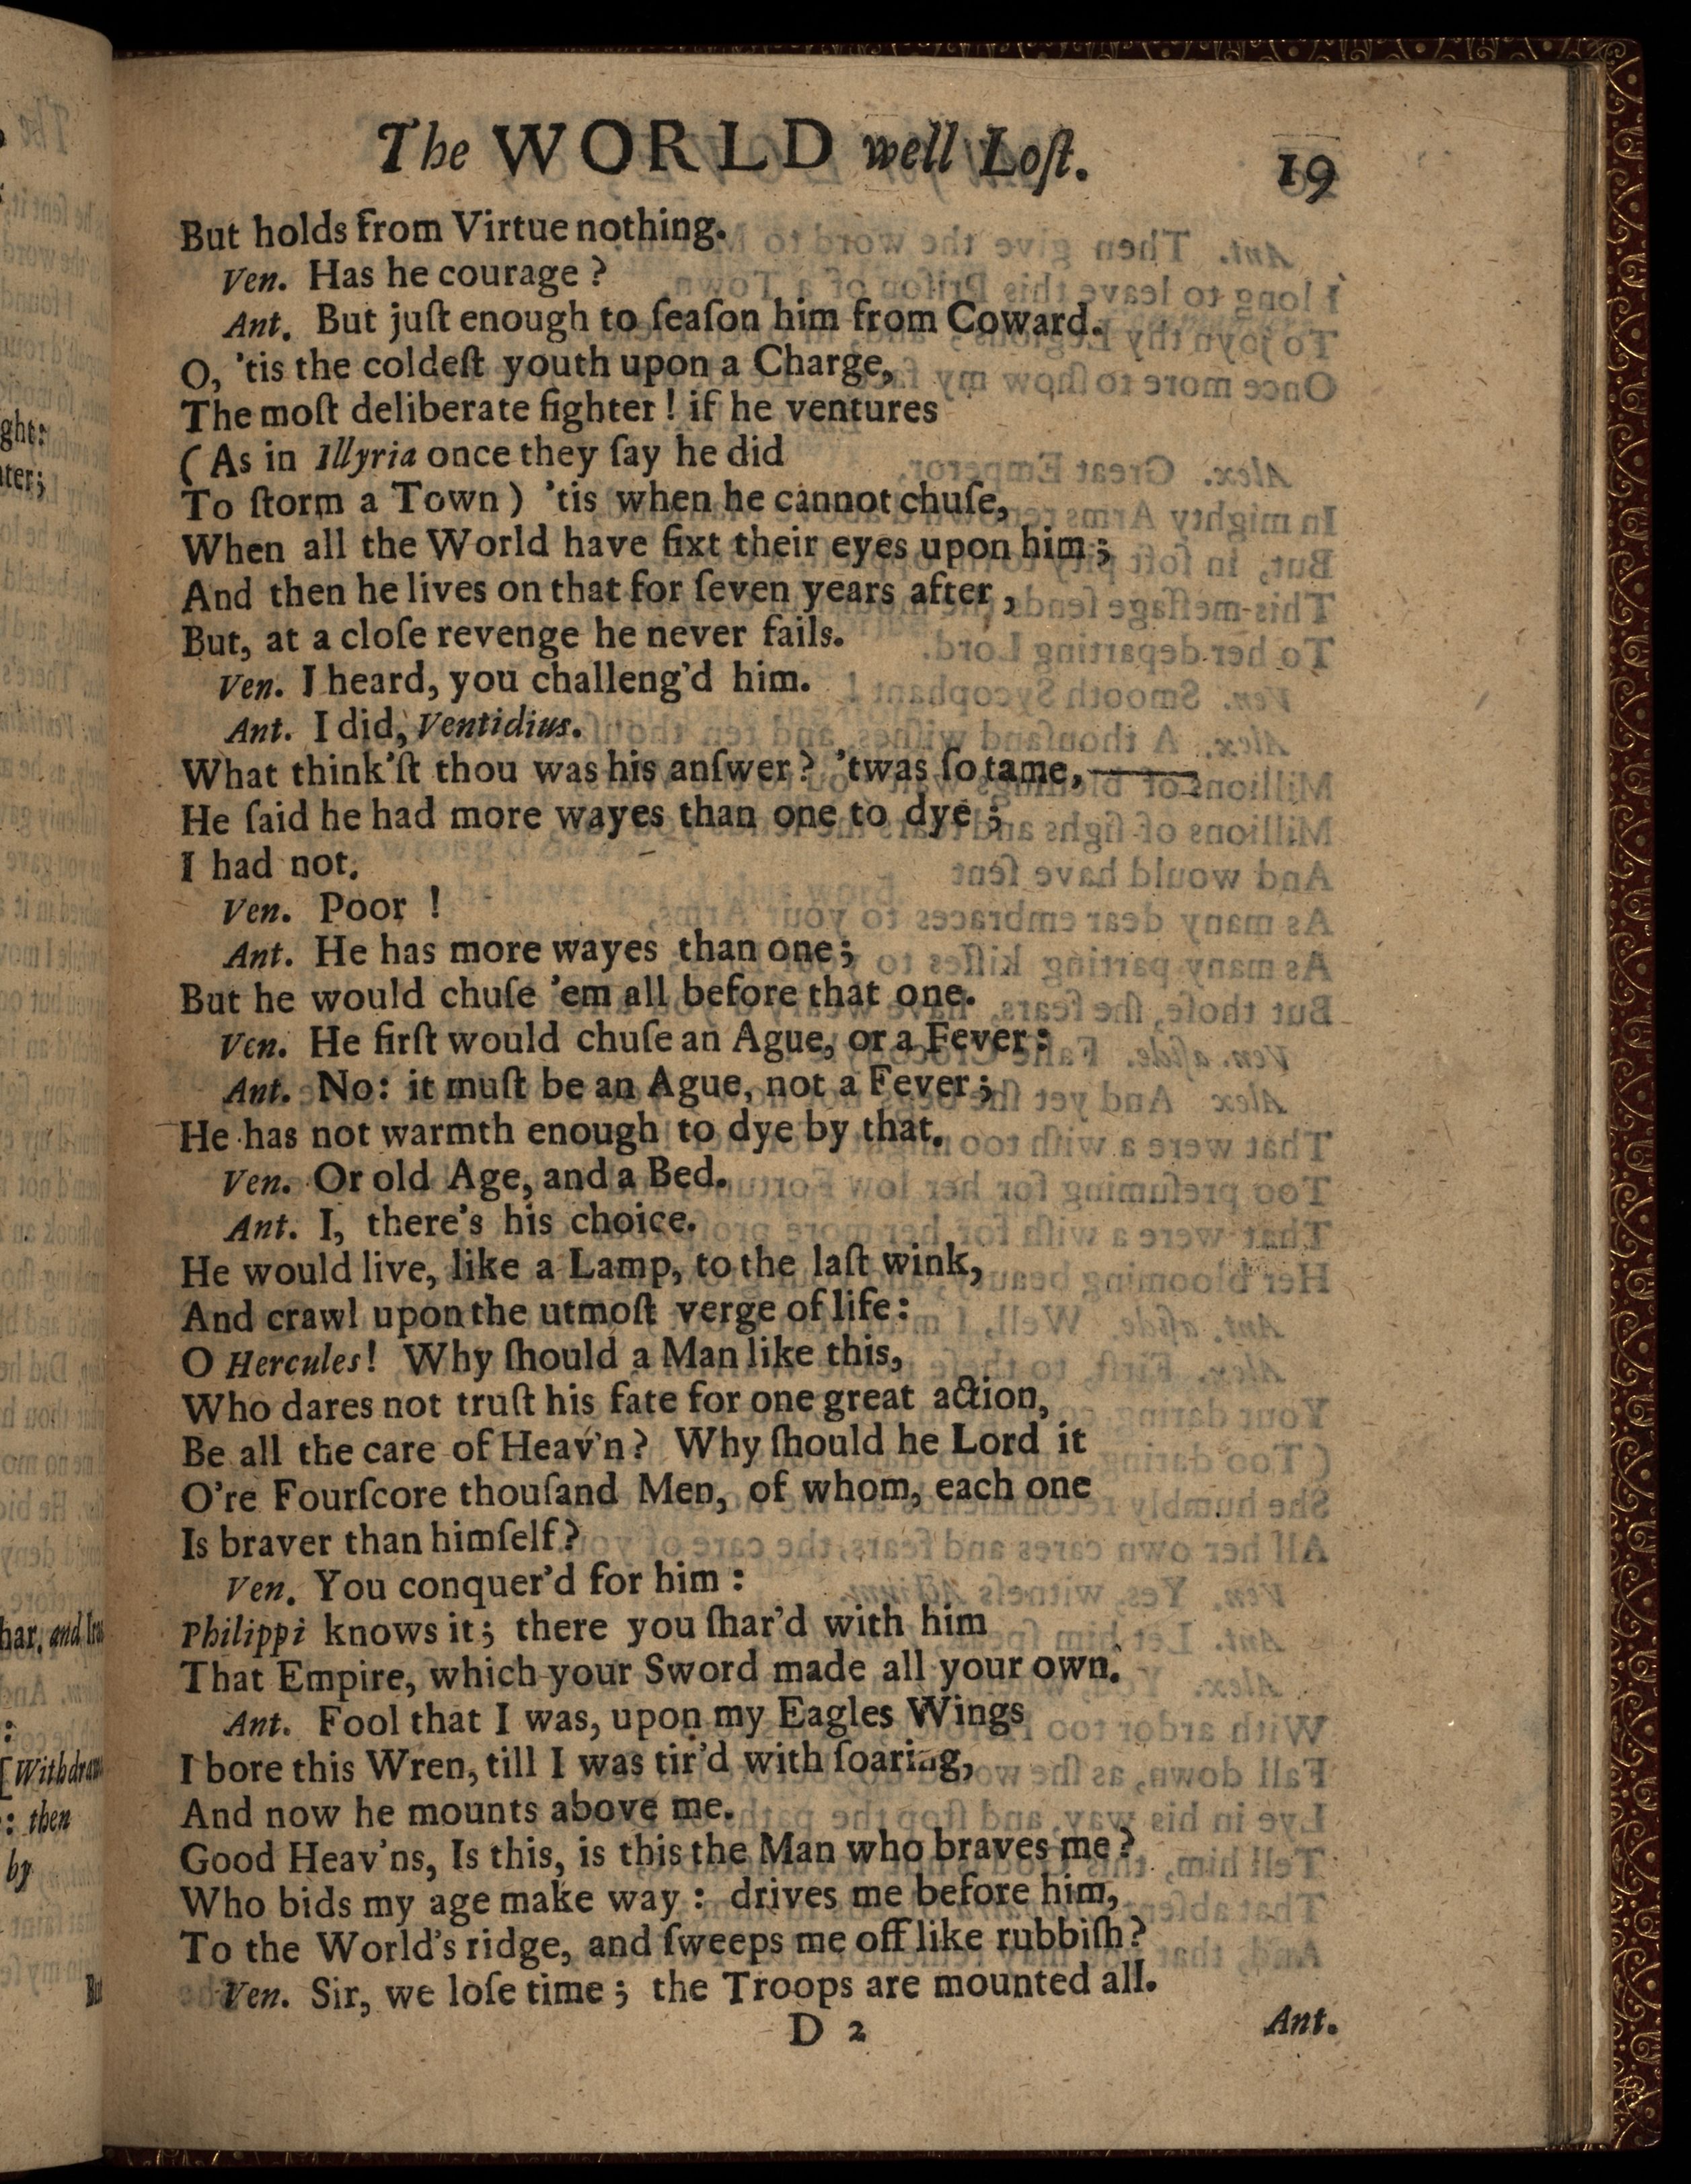 The WORLD well Loſt. 19
But holds from Virtue nothing.
Ven. Has he courage ?
Ant. But juſt enough to ſeaſon him from Coward.
O, 'tis the coldeſt youth upon a Charge,
The moſt deliberate fighter ! if he ventures
( As in Illyria once they ſay he did
To ſtorm a Town ) 'tis when he cannot chuſe,
When all the World have fixt their eyes upon him ;
And then he lives on that for ſeven years after ,
But, at a cloſe revenge he never fails.
Ven. I heard, you challeng'd him.
Ant. I did, Ventidius.
What think'ſt thou was his anſwer ? 'twas ſo tame,———
He ſaid he had more wayes than one to dye ;
I had not.
Ven. Poor !
Ant. He has more wayes than one ;
But he would chuſe 'em all before that one.
Ven. He firſt would chuſe an Ague, or a Fever :
Ant. No: it muſt be an Ague, not a Fever ;
He has not warmth enough to dye by that.
Ven. Or old Age, and a Bed.
Ant. I, there's his choice.
He would live, like a Lamp, to the laſt wink,
And crawl upon the utmoſt verge of life :
O Hercules ! Why ſhould a Man like this,
Who dares not truſt his fate for one great action,
Be all the care of Heav'n ? Why ſhould he Lord it
O're Fourſcore thouſand Men, of whom, each one
Is braver than himſelf ?
Ven. You conquer'd for him :
Philippi knows it ; there you ſhar'd with him
That Empire, which your Sword made all your own.
Ant. Fool that I was, upon my Eagles Wings
I bore this Wren, till I was tir'd with ſoaring,
And now he mounts above me.
Good Heav'ns, Is this, is this the Man who braves me ?
Who bids my age make way : drives me before him,
To the World's ridge, and ſweeps me off like rubbiſh ?
Ven. Sir, we loſe time ; the Troops are mounted all.
D 2 Ant.